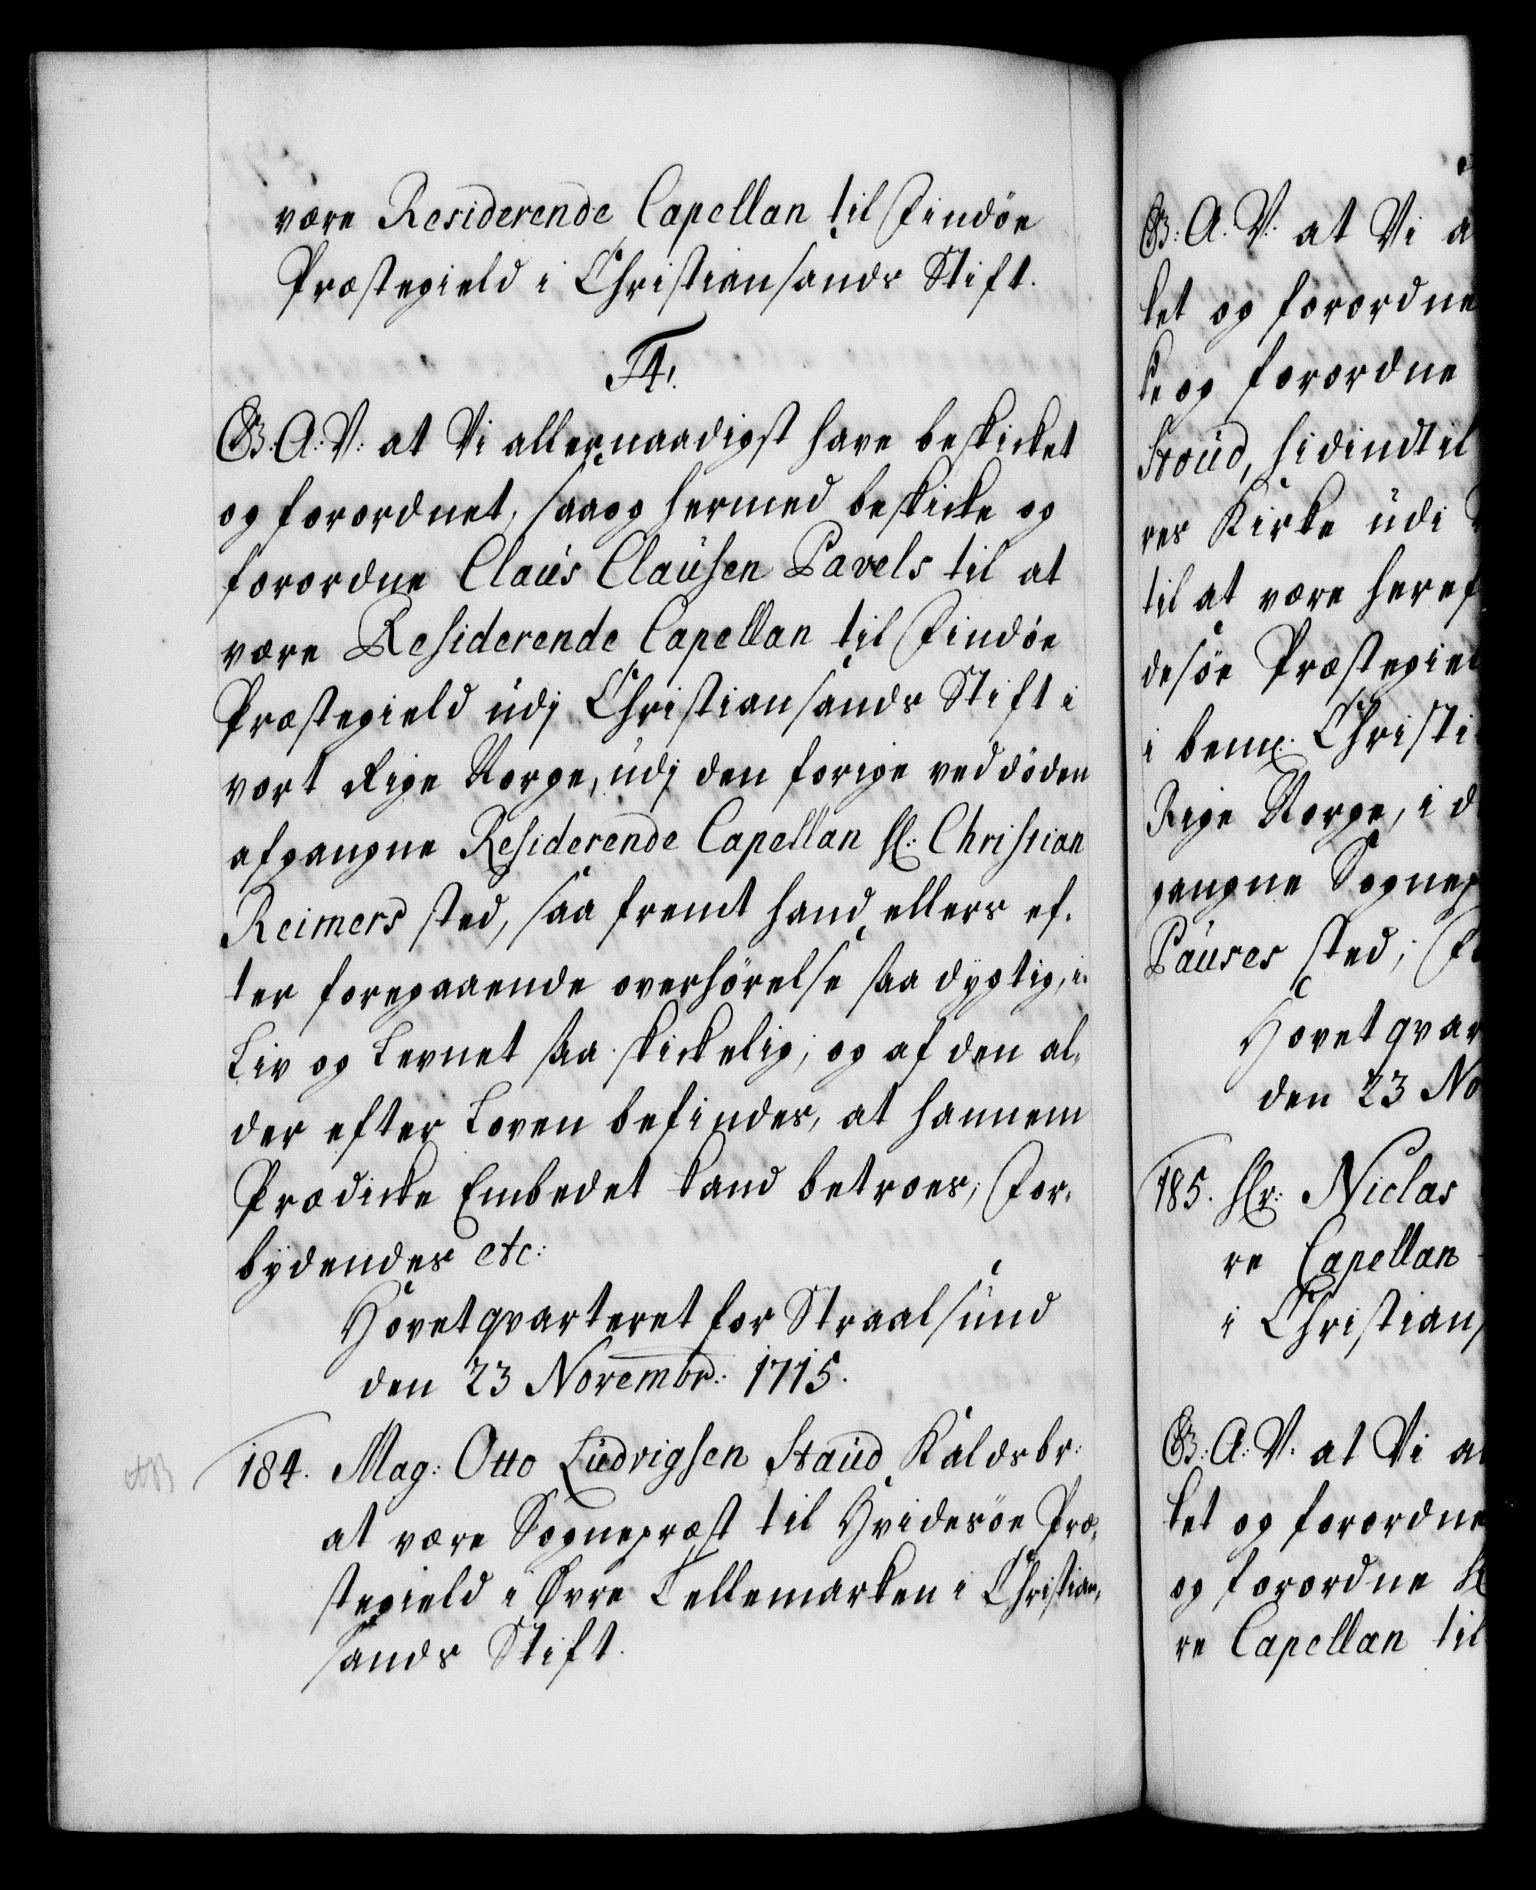 være Residerende Capellan til Findöe
Præstegield i Christiansands Stift.
F4.
G.A.V. at Vi allernaadigst have beskicket
og forordnet, saa og hermed beskicke og
forordne Claus Clausen Pavels til at
være Residerende Capellan til Findöe
Præstegield udj Christiansands Stift i
vort Rige Norge, udj den forige ved döden
afgangne Residerende Capellan Sl: Christian
Reimers sted, saa fremt hand ellers ef-
ter foregaaende overhörelse saa dygtig, i
Liv og Levnet saa skickelig, og af den al-
der efter Loven befindes, at hannem
Prædicke Embedet kand betroes, For-
bydendes etc:
Hovetqvarteret for Straalsund
den 23 Novembr: 1715.
184. Mag: Otto Ludvigsen Staud Kaldsbr:
at være Sognepræst til Hvidesöe Præ-
stegield i Övre Tellemarken i Christian-
sands Stift.
G: A. V. at Vi a
ket og forordne
ke og forordne
Stoud, hidindtil
res Kirke udi
til at være heref
desöe Præstegiel
i bem: Christi
Rige Norge, i d
gangne Sognep
Pauses sted; Fo
Hovetqvar
den 23 No
185. Hr: Niclas
re Capellan
i Christians
G: A: V. at Vi a
ket og forordne
og forordne H
re Capellan til